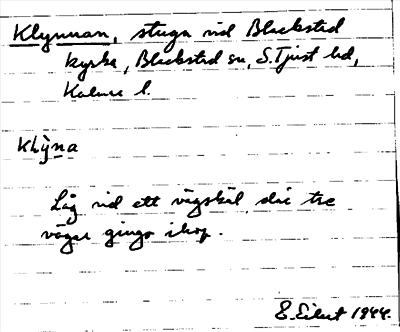 Klynnan, stuga vid Blackstad
kyrka, Blackstad sn, S. Tjust hd,
Kalmar l.
Klỳna
Låg vid ett vägskäl där tre
vägar gingo ihop.
1944.